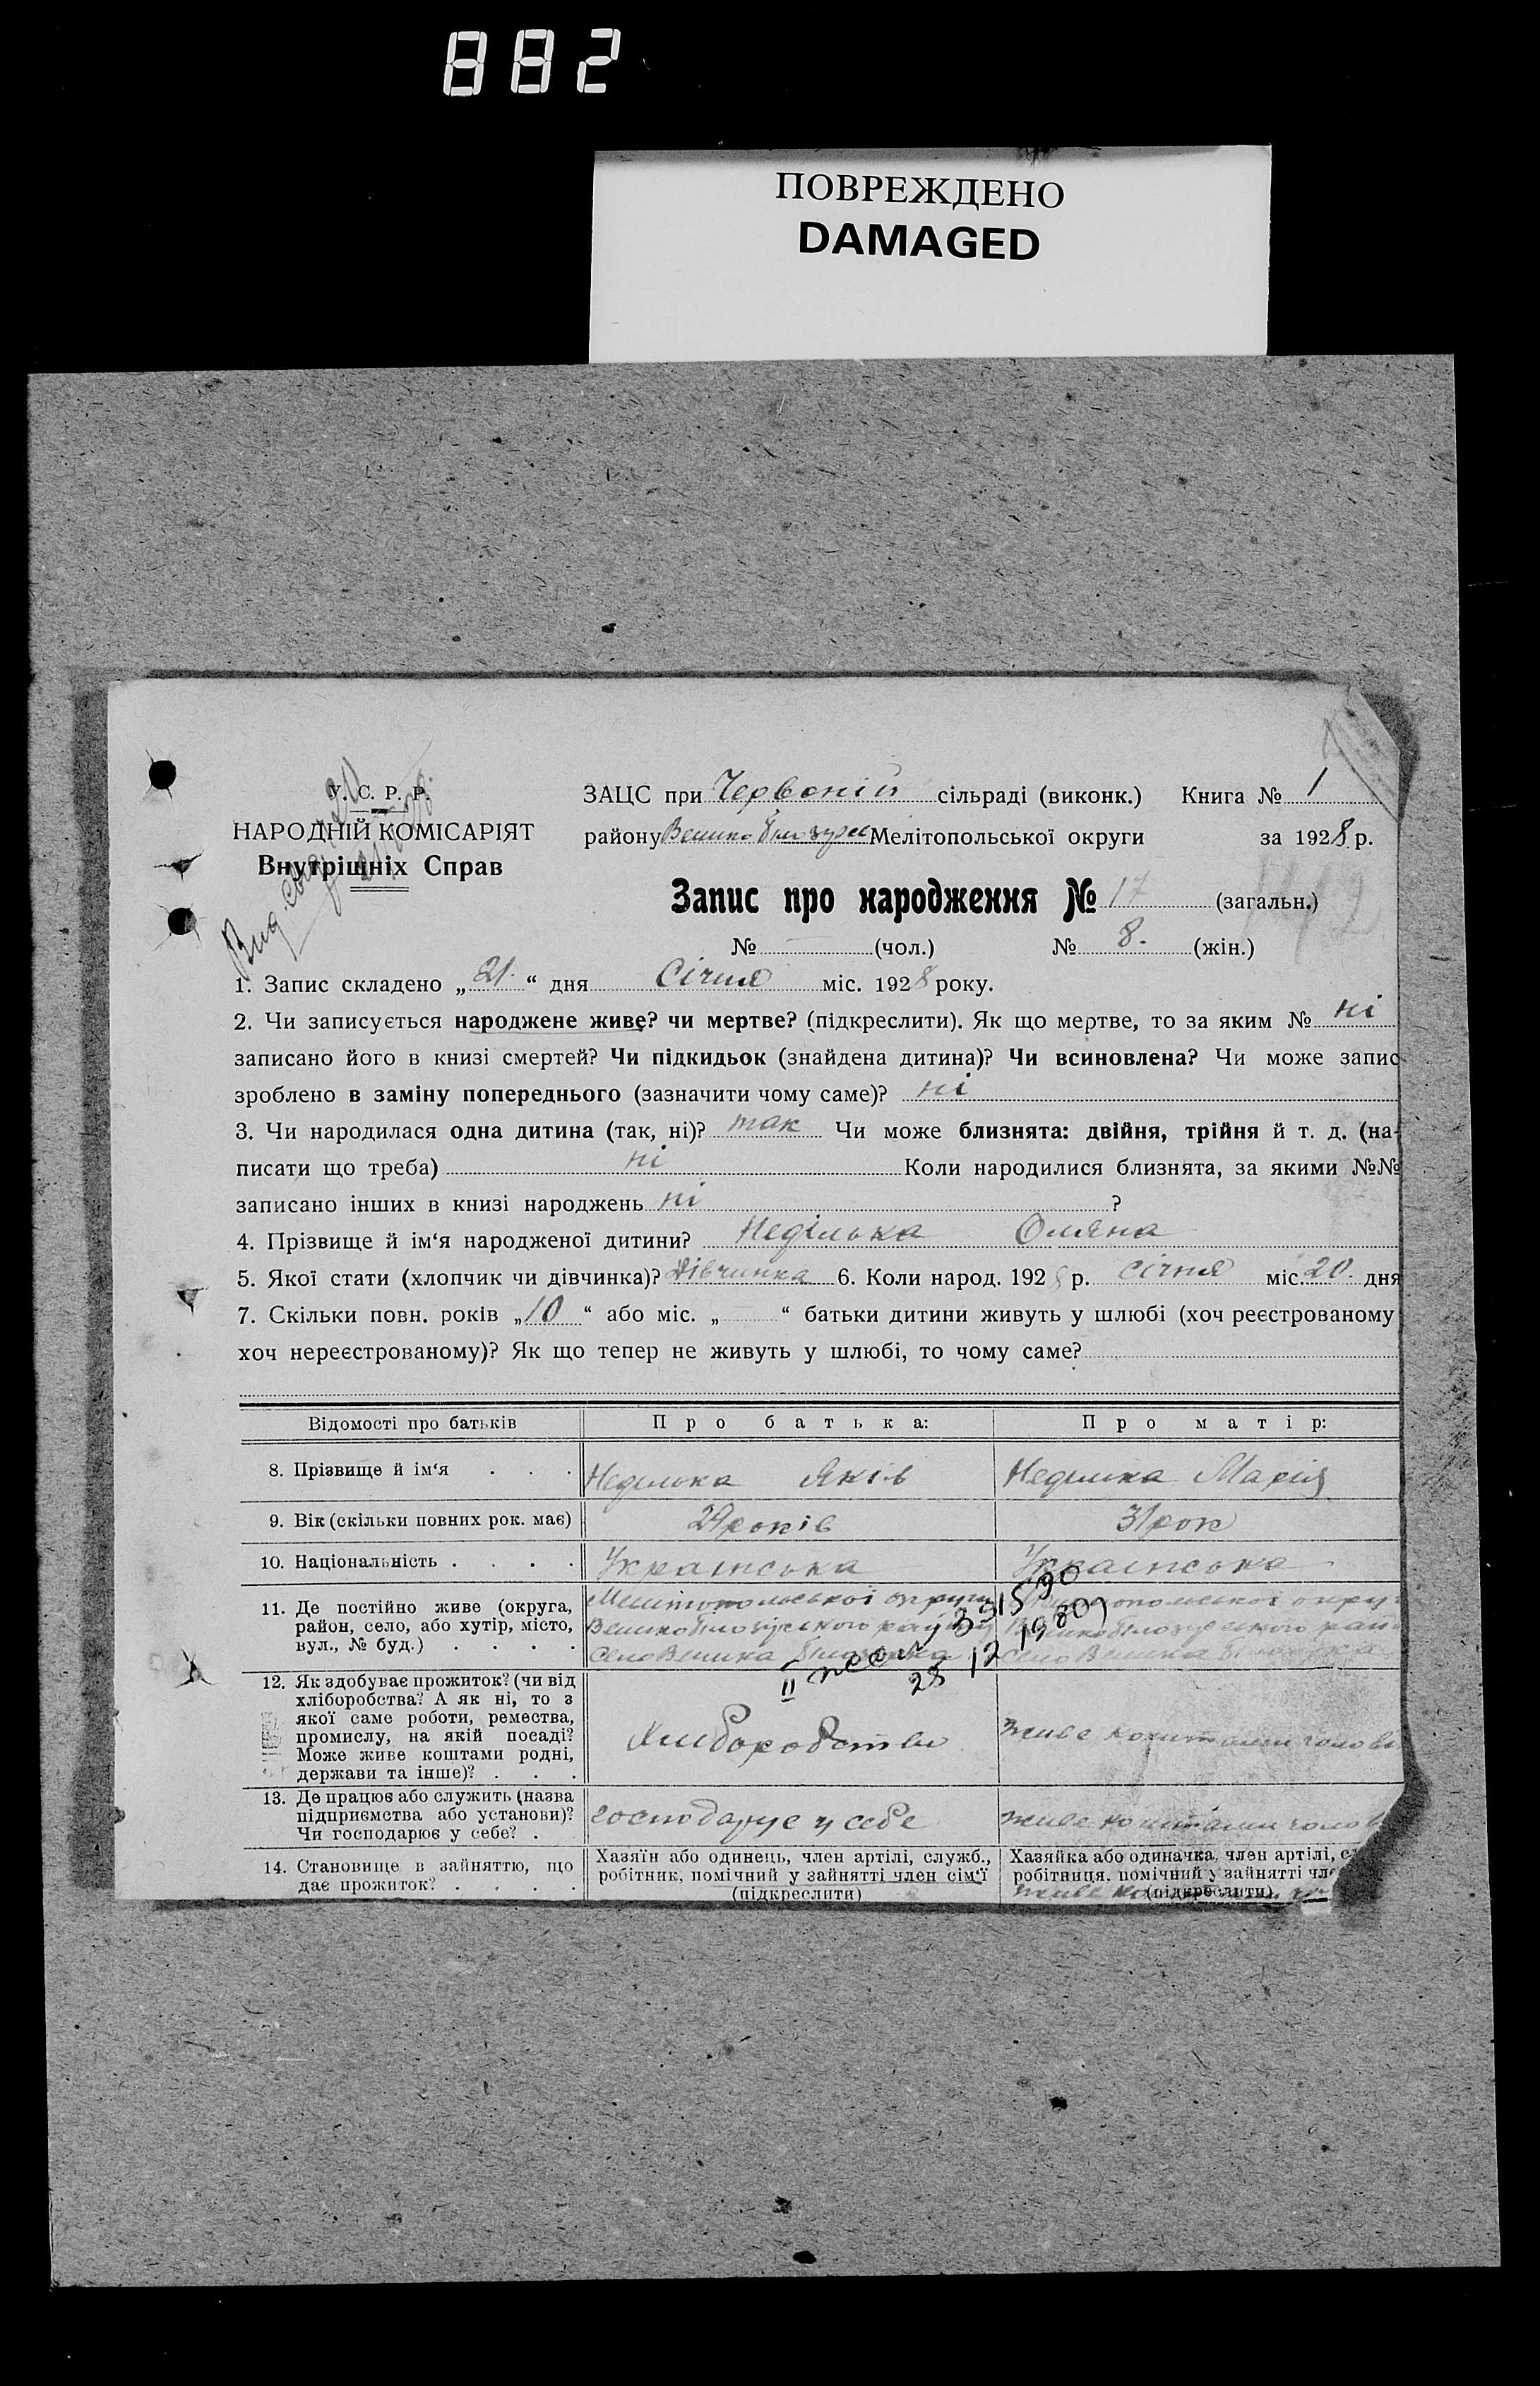 882
ПОВРЕЖДЕНО
DAMAGED
У. С. Р. Р.
НАРОДНІЙ КОМІСАРІЯТ
Внутрішніх Справ
ЗАЦС при Червоній сільраді (виконк.) Книга № 1
району Велико Білозірськ Мелітопольської округи за 1928 р.
Запис про народження № 17 (загальн.)
№ — (чол.) № 8. (жін.)
1. Запис складено „ 21. “ дня Січня міс. 1928 року.
2. Чи записується народжене живе? чи мертве? (підкреслити). Як що мертве, то за яким № ні
записано його в книзі смертей? Чи підкидьок (знайдена дитина)? Чи всиновлена? Чи може запис
зроблено в заміну попереднього (зазначити чому саме)? ні
3. Чи народилася одна дитина (так, ні)? так Чи може близнята: двійня, трійня й т. д. (на-
писати що треба) ні Коли народилися близнята, за якими №№
записано інших в книзі народжень ні ?
4. Прізвище й ім‘я народженої дитини? Неділька Оляна
5. Якої стати (хлопчик чи дівчинка)? Дівчинка 6. Коли народ. 1928 р. січня міс. 20. дня
7. Скільки повн. років „ 10 “ або міс. „ “ батьки дитини живуть у шлюбі (хоч реєстрованому
хоч нереєстрованому)? Як що тепер не живуть у шлюбі, то чому саме?
Відомості про батьків Про батька: Про матір:
8. Прізвище й ім‘я . . . Неділька Яків Неділька Марія
9. Вік (скільки повних рок. має) 29 років 31 рок
10. Національність . . . . Українська Українська
11. Де постійно живе (округа,
район, село, або хутір, місто,
вул., № буд.) . . . .
Мелітопольської округи
Великобілозірського району
Село Велика Білозірка
28 12 1980
12. Як здобуває прожиток? (чи від
хліборобства? А як ні, то з
якої саме роботи, ремества,
промислу, на якій посаді?
Може живе коштами родні,
держави та інше)? . . .
Хліборобством
живе коштами чолові
13. Де працює або служить (назва
підприємства або установи)?
Чи господарює у себе? .
господарує у себе
живе коштами чолов
14. Становище в зайняттю, що
дає прожиток? . . . .
Хазяїн або одинець, член артілі, служб.,
робітник, помічний у зайнятті член сім‘ї
(підкреслити)
Хазяйка або одиначка, член артілі, с
робітниця, помічний у зайнятті чле
(підкреслити)